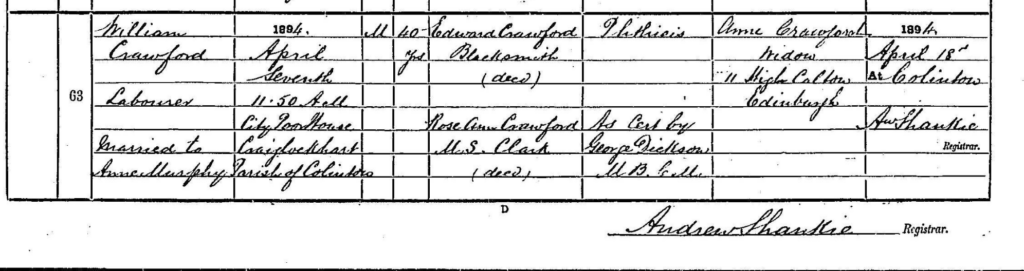 63
William
Crawford
Labourer
Married to
Anne Murphy
1894.
April
Seventh
11.50 AM
City Poor House
Craiglockhart
Parish of Colinton
M
40
yrs
Edward Crawford
Blacksmith
(decd)
Rose Ann Crawford
M.S. Clark
(decd)
Phthisis
As Cert by
George Dickson
M.B. C.M.
Anne Crawford
Widow
11 High Calton
Edinburgh
1894.
April 18th
At Colinton
Aw Shankie
Registrar.
D
Andrew Shankie Registrar.